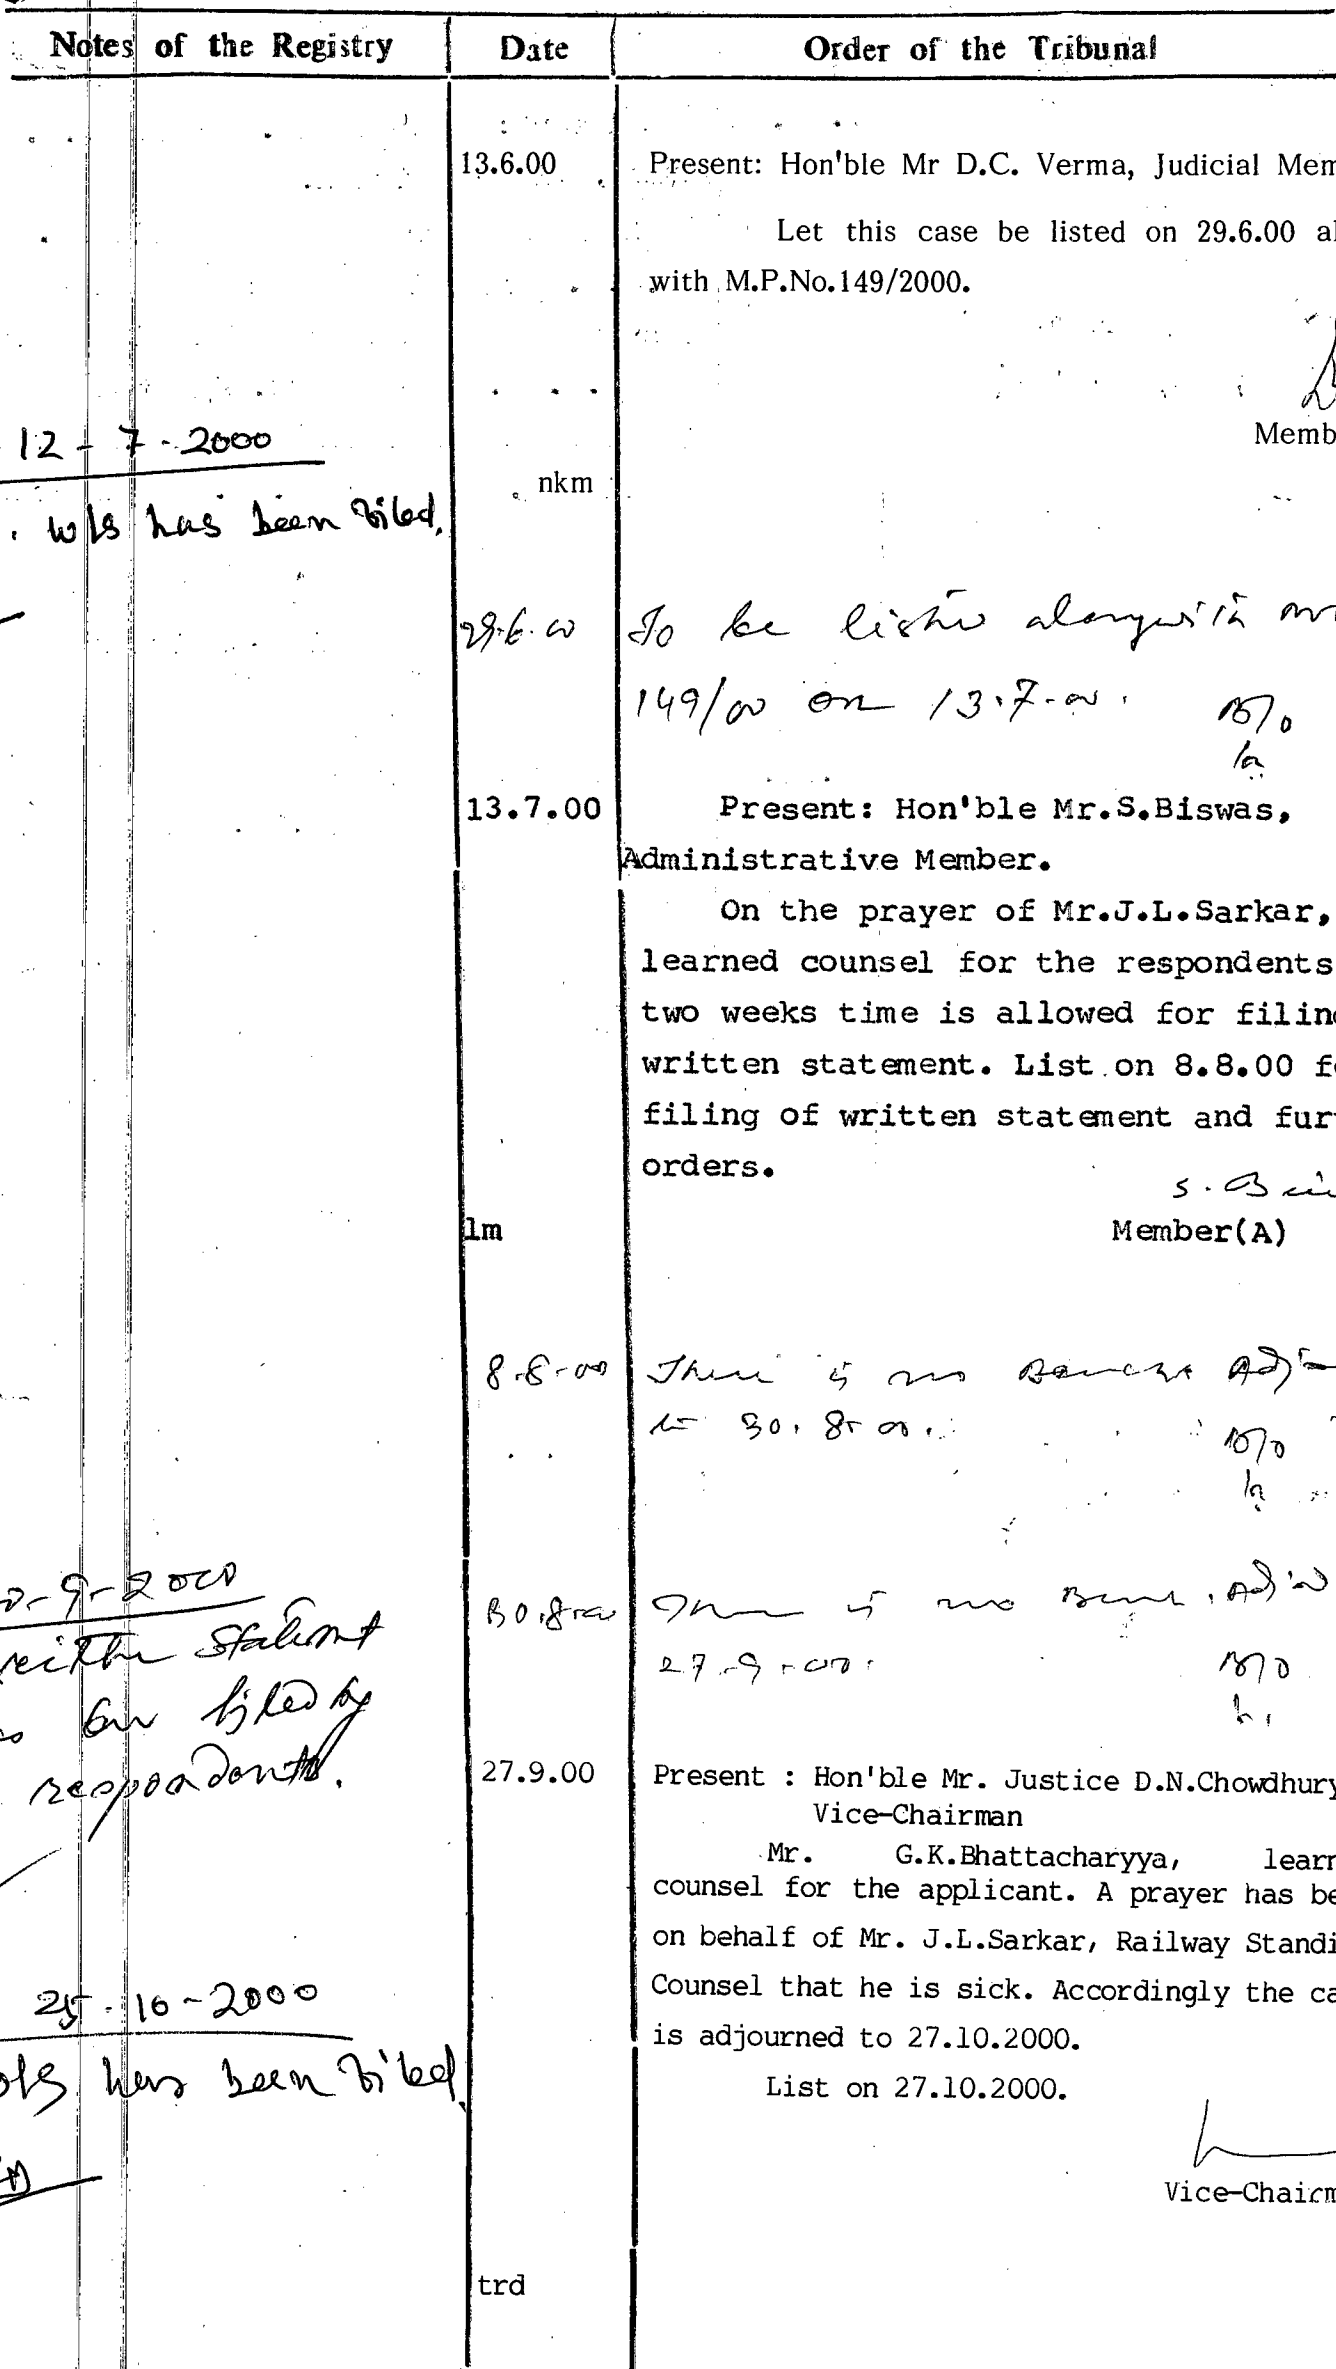 Notes of the Registry
Date
Order of the Tribunal
13.6.00
Present: Hon'ble Mr D.C. Verma, Judicial Mem
Let this case be listed on 29.6.00 al
with M.P.No.149/2000.
Memb
nkm
12-7-2000
w/s has been filed.
29.6.00
To be listed alongwith
149/00 on 13.7.00.
13.7.00
Present: Hon'ble Mr.S.Biswas,
Administrative Member.
On the prayer of Mr.J.L.Sarkar,
learned counsel for the respondents
two weeks time is allowed for filin
written statement. List on 8.8.00 f
filing of written statement and fur
orders.
Member(A)
lm
8.8.00
There is no Bench. Adj
to 30.8.00.
30.8.00
There is no Bench. Adj'd
27.9.00.
0-9-2000
statement
filed by
respondents.
27.9.00
Present : Hon'ble Mr. Justice D.N.Chowdhury
Vice-Chairman
Mr. G.K.Bhattacharyya, learn
counsel for the applicant. A prayer has be
on behalf of Mr. J.L.Sarkar, Railway Standi
Counsel that he is sick. Accordingly the ca
is adjourned to 27.10.2000.
List on 27.10.2000.
Vice-Chairm
25-10-2000
has been filed
trd